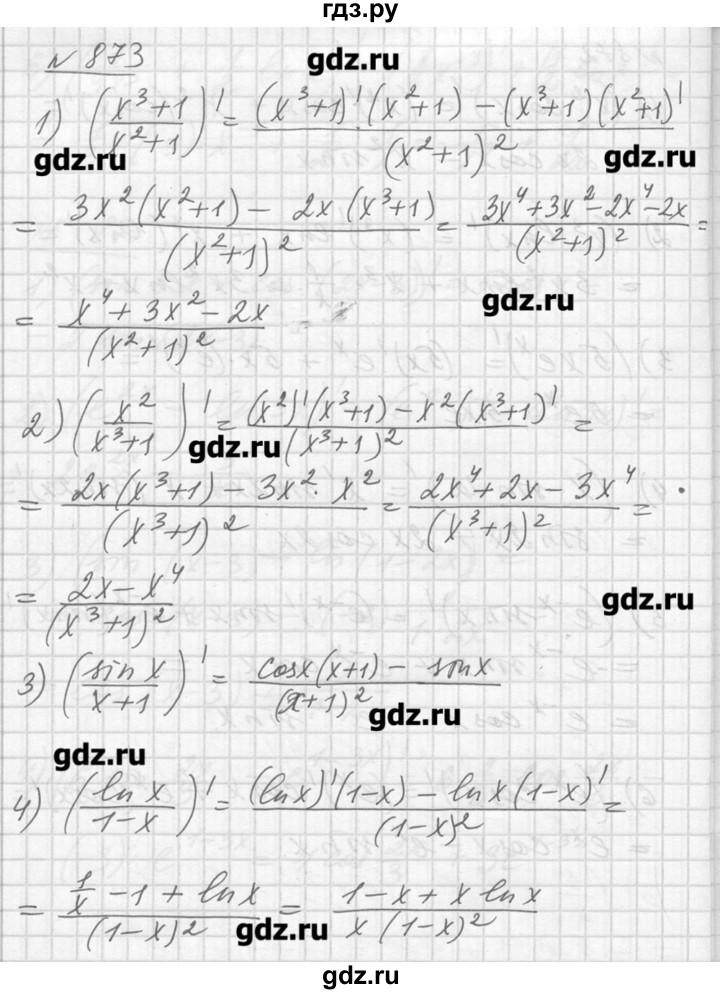 гдз.ру
№ 873
gdz.ru
1) ((x³+1)/(x²+1))' = ((x³+1)'(x²+1) − (x³+1)(x²+1)')/(x²+1)²
gdz.ru gdz.ru
= (3x²(x²+1) − 2x(x³+1))/(x²+1)² = (3x⁴+3x²−2x⁴−2x)/(x²+1)² =
gdz.ru
= (x⁴+3x²−2x)/(x²+1)²
2) (x²/(x³+1))' = ((x²)'(x³+1) − x²(x³+1)')/(x³+1)² =
gdz.ru
= (2x(x³+1) − 3x²·x²)/(x³+1)² = (2x⁴+2x−3x⁴)/(x³+1)² =
= (2x−x⁴)/(x³+1)²
gdz.ru
3) (sin x/(x+1))' = (cosx(x+1) − sinx)/(x+1)²
gdz.ru
gdz.ru
4) (ln x/(1−x))' = ((lnx)'(1−x) − lnx(1−x)')/(1−x)² =
= (1/x −1 + lnx)/(1−x)² = (1−x+x lnx)/(x(1−x)²)
gdz.ru
gdz.ru